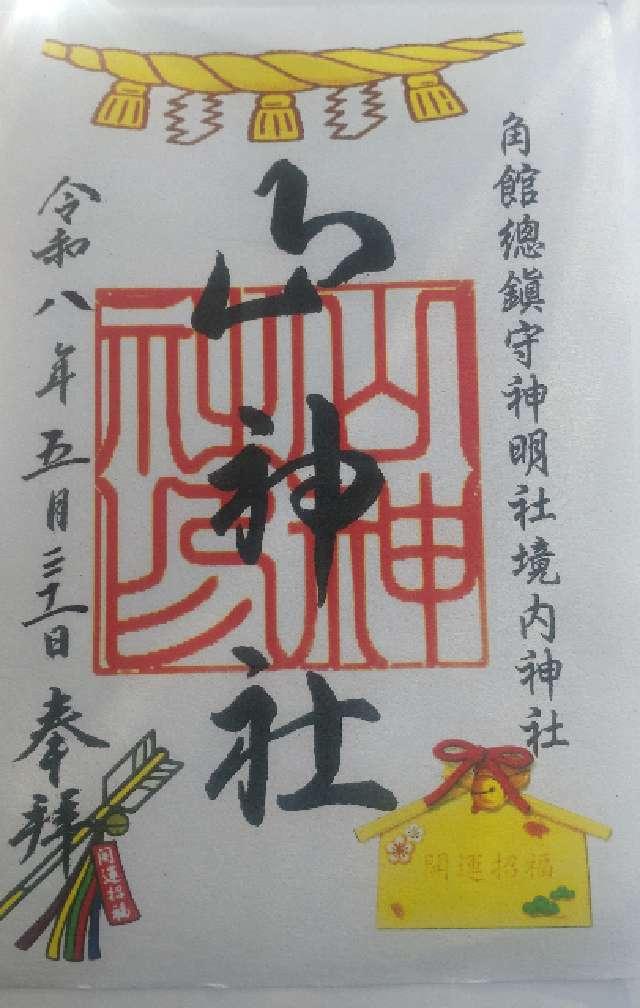 角館總鎮守神明社境内神社
山神社
令和八年五月三十一日
奉拝
開運招福
開運招福